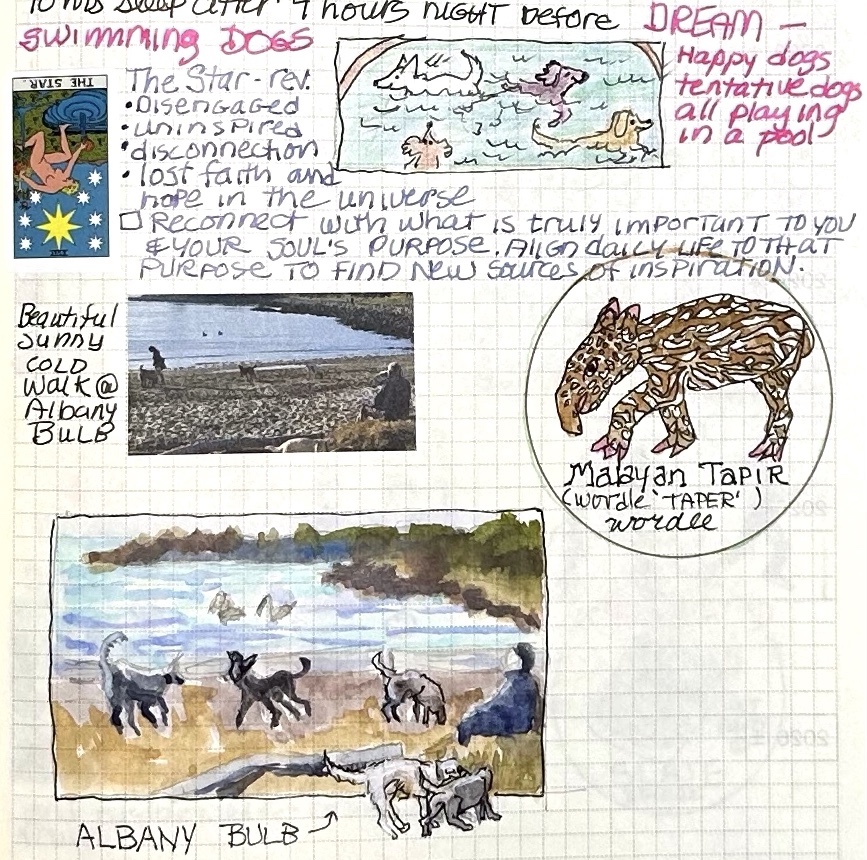 10 hrs sleep after 4 hours night before
DREAM –
SWIMMING DOGS
Happy dogs
tentative dogs
all playing
in a pool
THE STAR.
XVII
The Star - rev.
• Disengaged
• uninspired
• disconnection
• lost faith and
hope in the universe
☐ Reconnect with what is truly important to you
& your soul's purpose. Align daily life to that
purpose to find new sources of inspiration.
Beautiful
sunny
cold
walk @
Albany
Bulb
Malayan Tapir
(Wordle 'TAPER')
wordle
ALBANY BULB